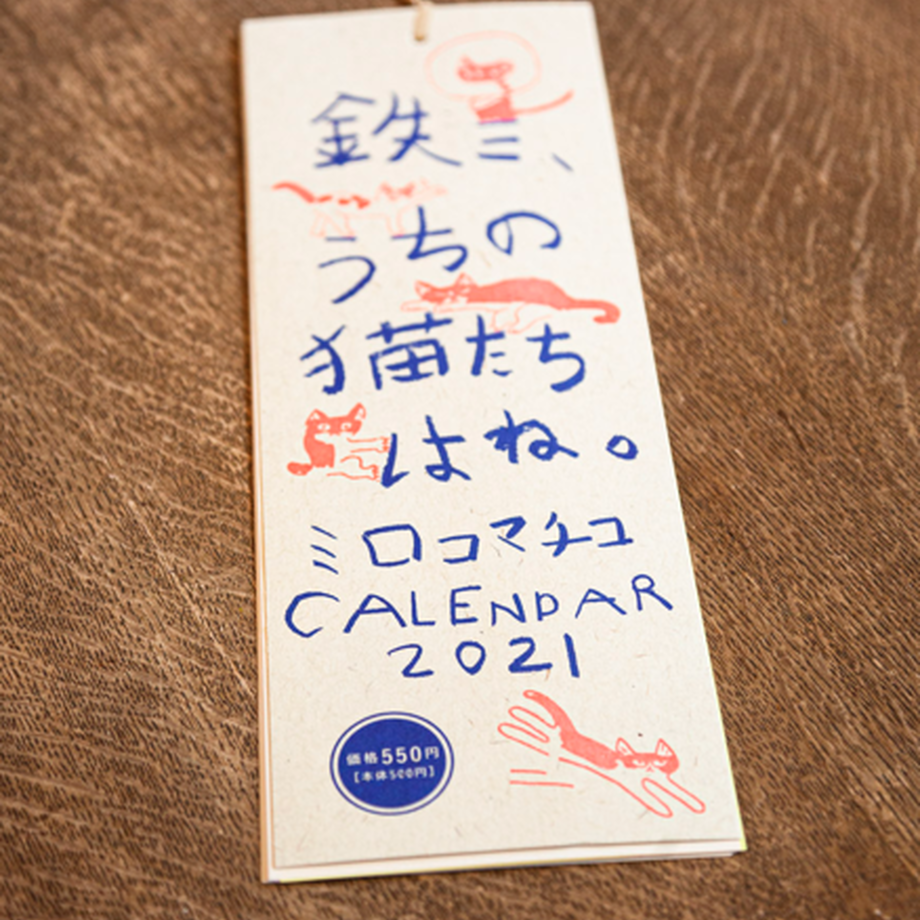 鉄三、
うちの
猫たち
はね。
ミロコマチコ
CALENDAR
2021
価格550円
[本体500円]